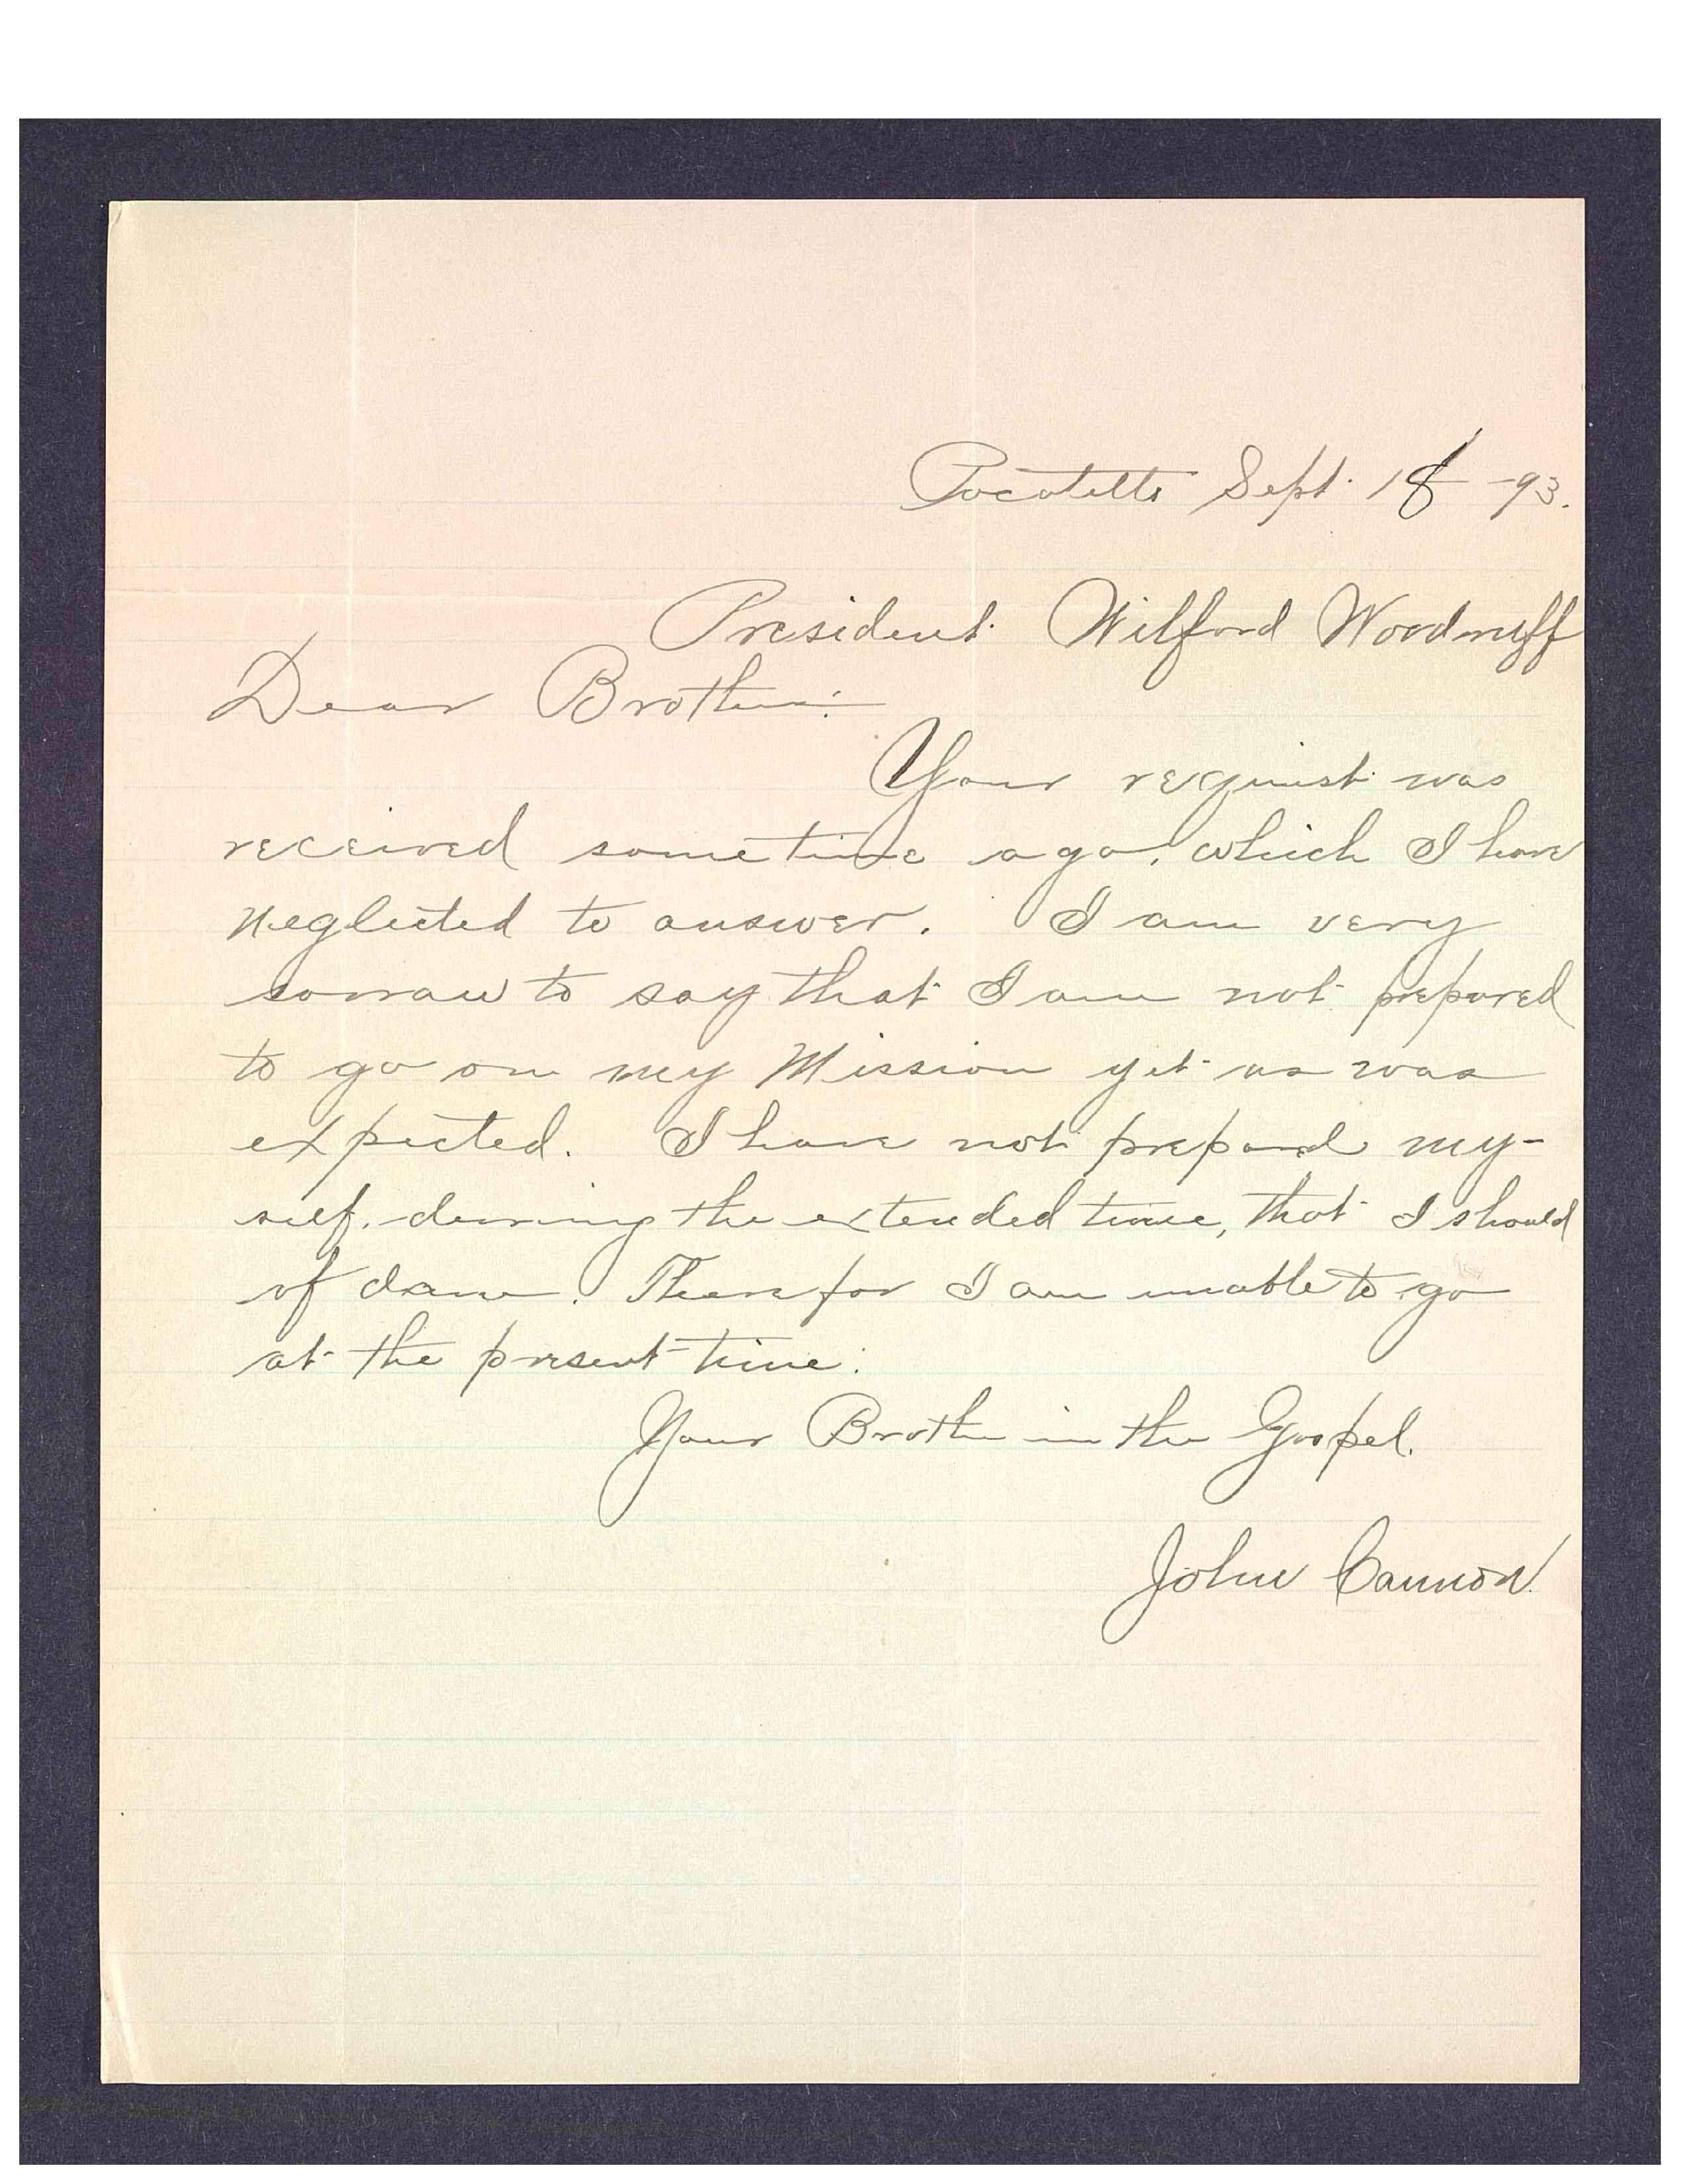 Pocatello Sept. 18 -93.
President Wilford Woodruff
Dear Brother:
Your requist was
received some time ago, which I have
neglected to answer. I am very
sorraw to say that I am not prepared
to go on my Mission yet as was
expected. I have not prepared my-
self, during the extended time, that I should
of done. Therefor I am unable to go
at the present time.
Your Brother in the Gospel.
John Cannon.